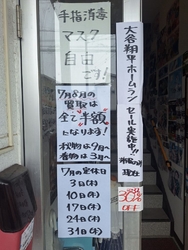 手指消毒
マスク
自由
です!
7月8月の
買取は
全て半額
になります!
秋物は9月へ
春物は3月へ
7月の定休日
3日(水)
10日(水)
17日(水)
24日(水)
31日(水)
大谷翔平ホームラン
セール実施中!!
現在
30%
OFF